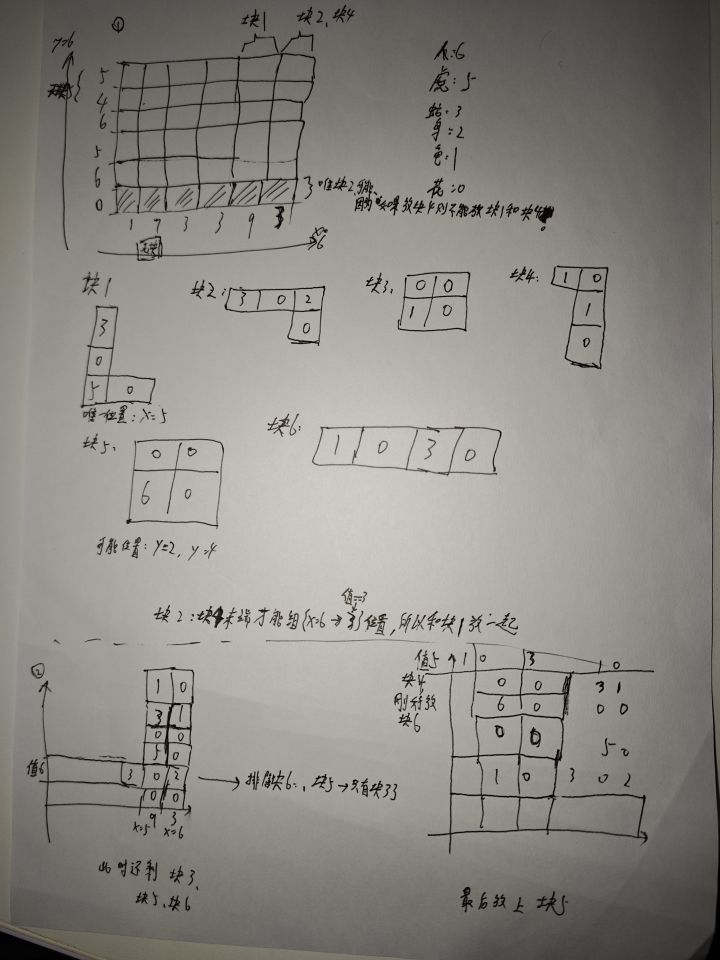 ①
块1 块2,块4
y=6
人:6
虎:5
蛇:3
身=2
色:1
花:0
5
4
6
5
6
0
3 唯块2可能,
因为如果放块4则不能放块1和块4
1 7 3 3 9 3
x=6
块1
3
0
5 0
唯一位置:x=5
块2:
3 0 2
0
块3:
0 0
1 0
块4:
1 0
1
0
块5:
0 0
6 0
可能位置:y=2, y=4
块6:
1 0 3 0
值=3
块2:块4末端才能组{x=6→3}位置,所以和块1放一起
②
1 0
3 1
0 0
5 0
值6
3 0 2
0 0
9 3
x=5 x=6
排除块6、块5→只有块3
此时还剩 块3、
块5、块6
值5 1 0 3 1 0
块4
刚好放
块6
0 0 3 1
6 0 0 0
0 0 5 0
1 0 3 0 2
最后放上 块5